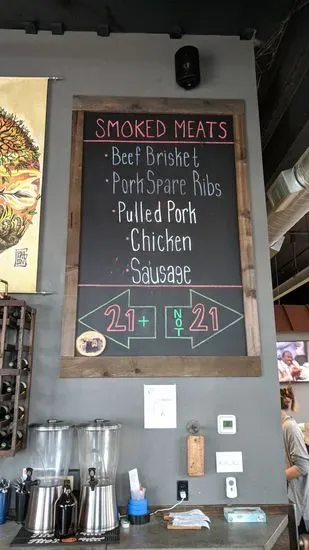 SMOKED MEATS
• Beef Brisket
• Pork Spare Ribs
• Pulled Pork
• Chicken
• Sausage
21+
NOT 21